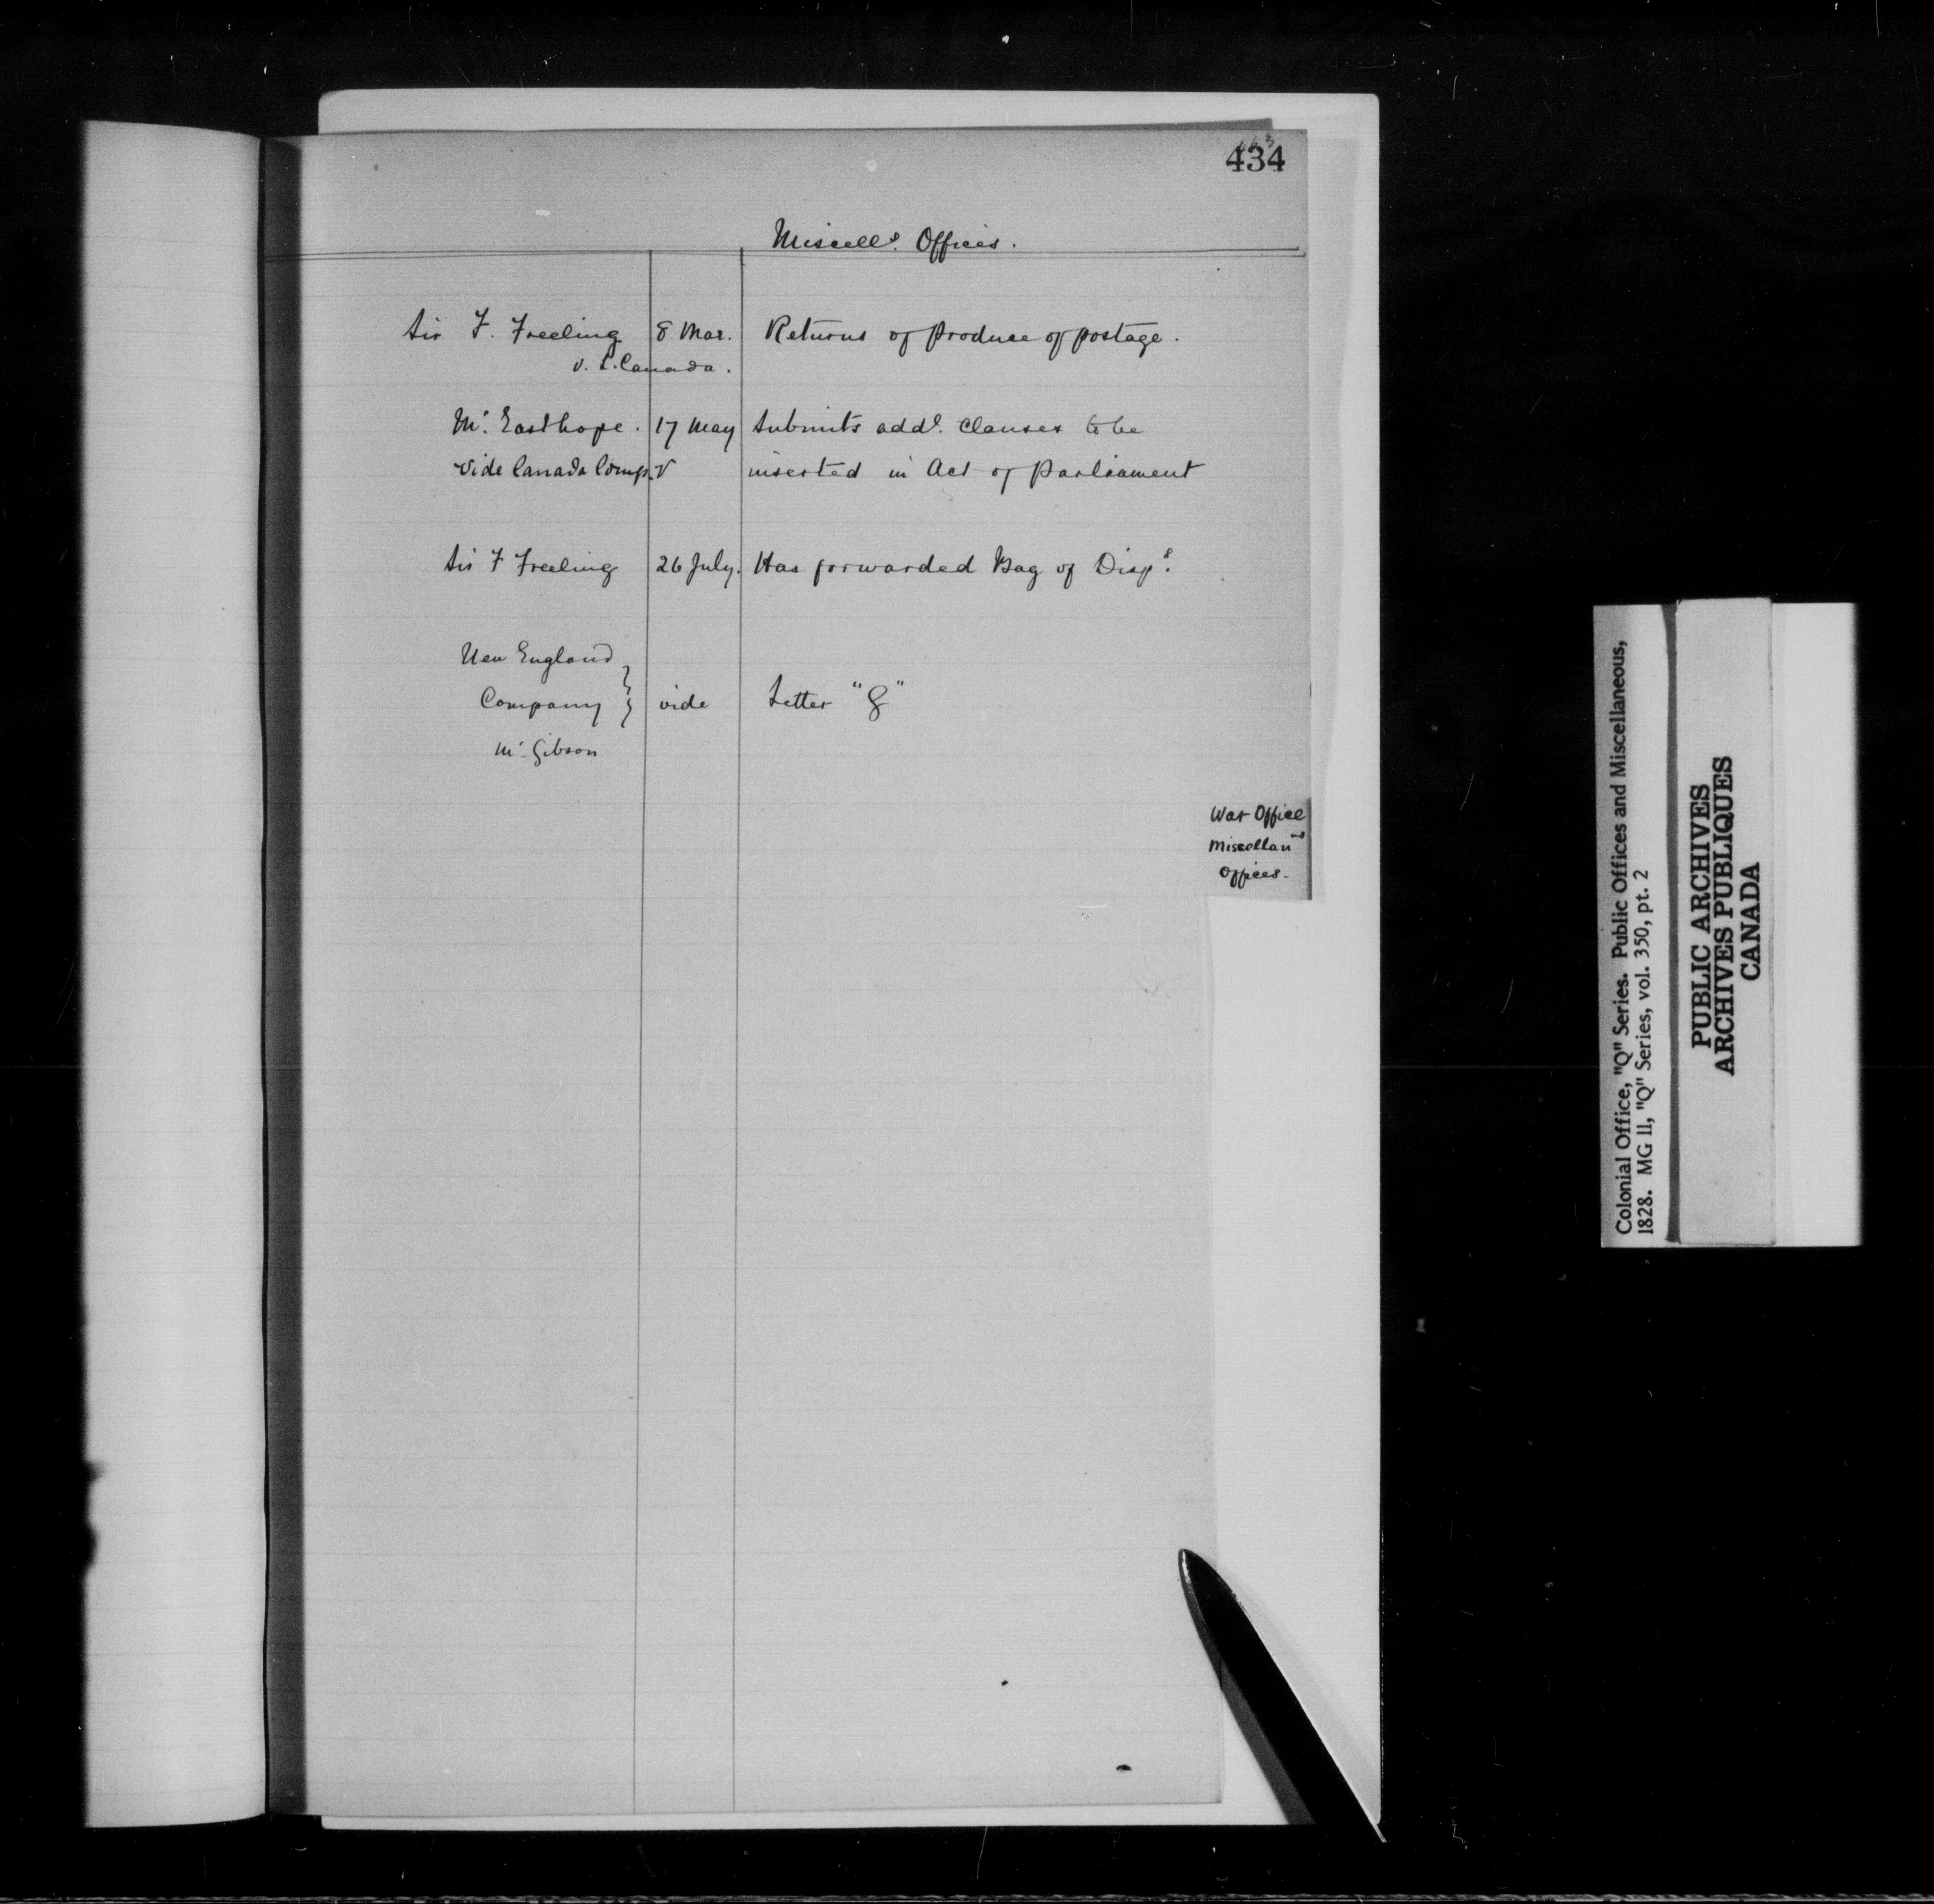 434
Miscells. Offices.
Sir F. Freeling 8 Mar. Returns of produce of postage.
v. L. Canada.
Mr. Easthope. 17 May Submits addl. clauses to be
vide Canada Comp.y inserted in Act of Parliament
Sir F Freeling 26 July. Has forwarded Bag of Disps.
New England
Company } vide Letter "G"
Mr. Gibson
War Office
Miscellan
Offices.
Colonial Office, "Q" Series. Public Offices and Miscellaneous,
1828. MG 11, "Q" Series, vol. 350, pt. 2
PUBLIC ARCHIVES
ARCHIVES PUBLIQUES
CANADA